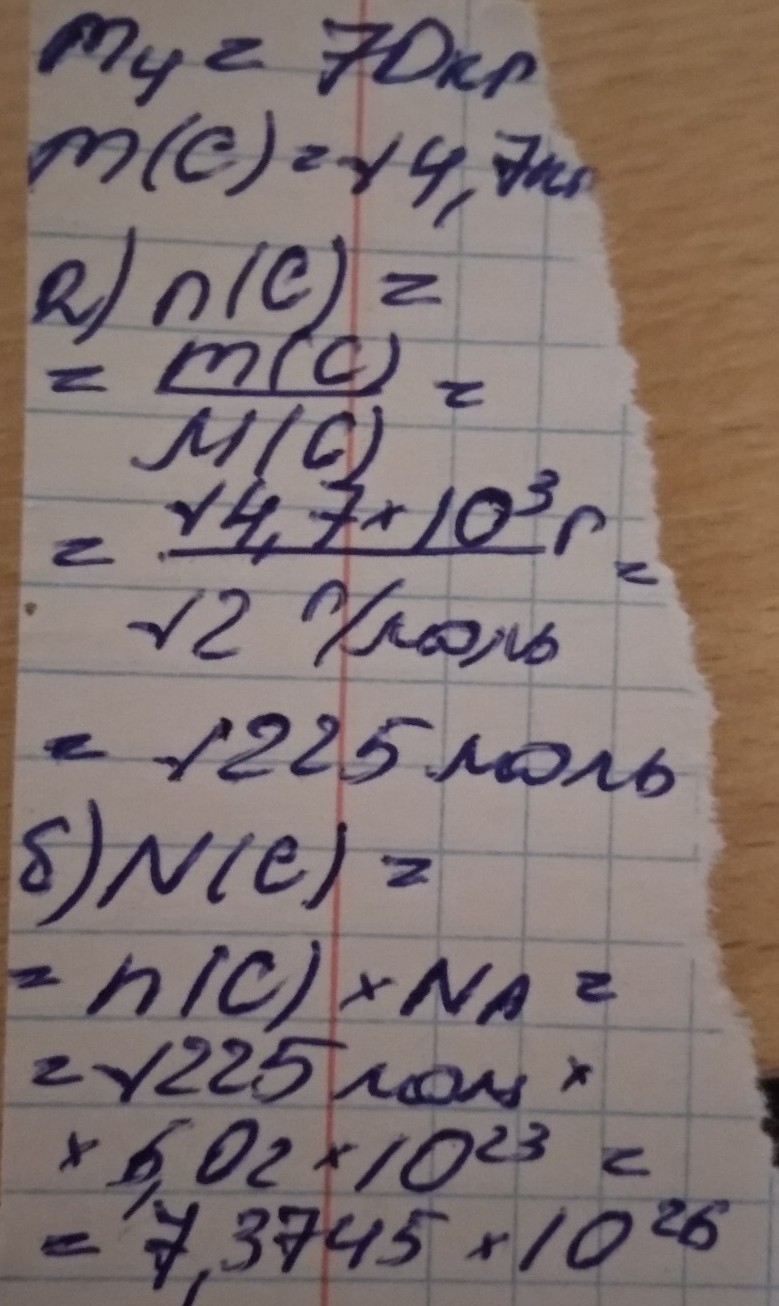 mч = 70кг
m(C) = 14,7кг
а) n(C) =
= m(C) =
M(C)
= 14,7 × 10³ г =
12 г/моль
= 1225 моль
б) N(C) =
= n(C) × NA =
= 1225 моль ×
× 6,02 × 10²³ =
= 7,3745 × 10²⁶